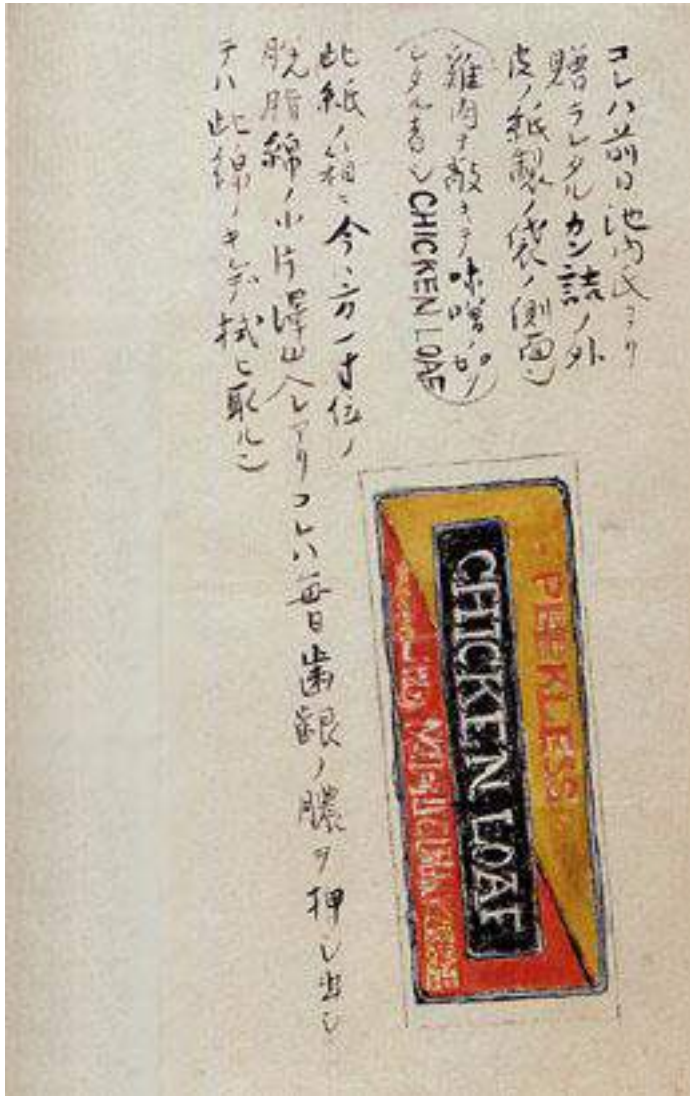 コレハ前日池内氏ヨリ
贈ラレタルカン詰ノ外
皮ノ紙製ノ袋ノ側面ナリ
(雞肉ヲ敲キテ味噌ノ如ク
シタル者) CHICKEN LOAF
此紙ノ箱ニ今ハ方一寸位ノ
脱脂綿ノ小片澤山入レアリコレハ毎日歯齦ノ膿ヲ押シ出シ
テハ此綿ノキレデ拭ヒ取ルナリ
PEERLESS
CHICKEN LOAF